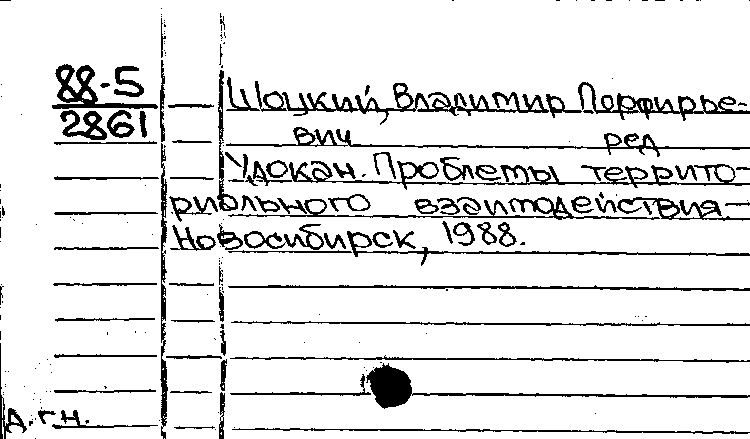 88-5
2861
Шоцкий, Владимир Порфирье-
вич ред
Удокан. Проблемы террито-
риального взаимодействия.—
Новосибирск, 1988.
д.г.н.